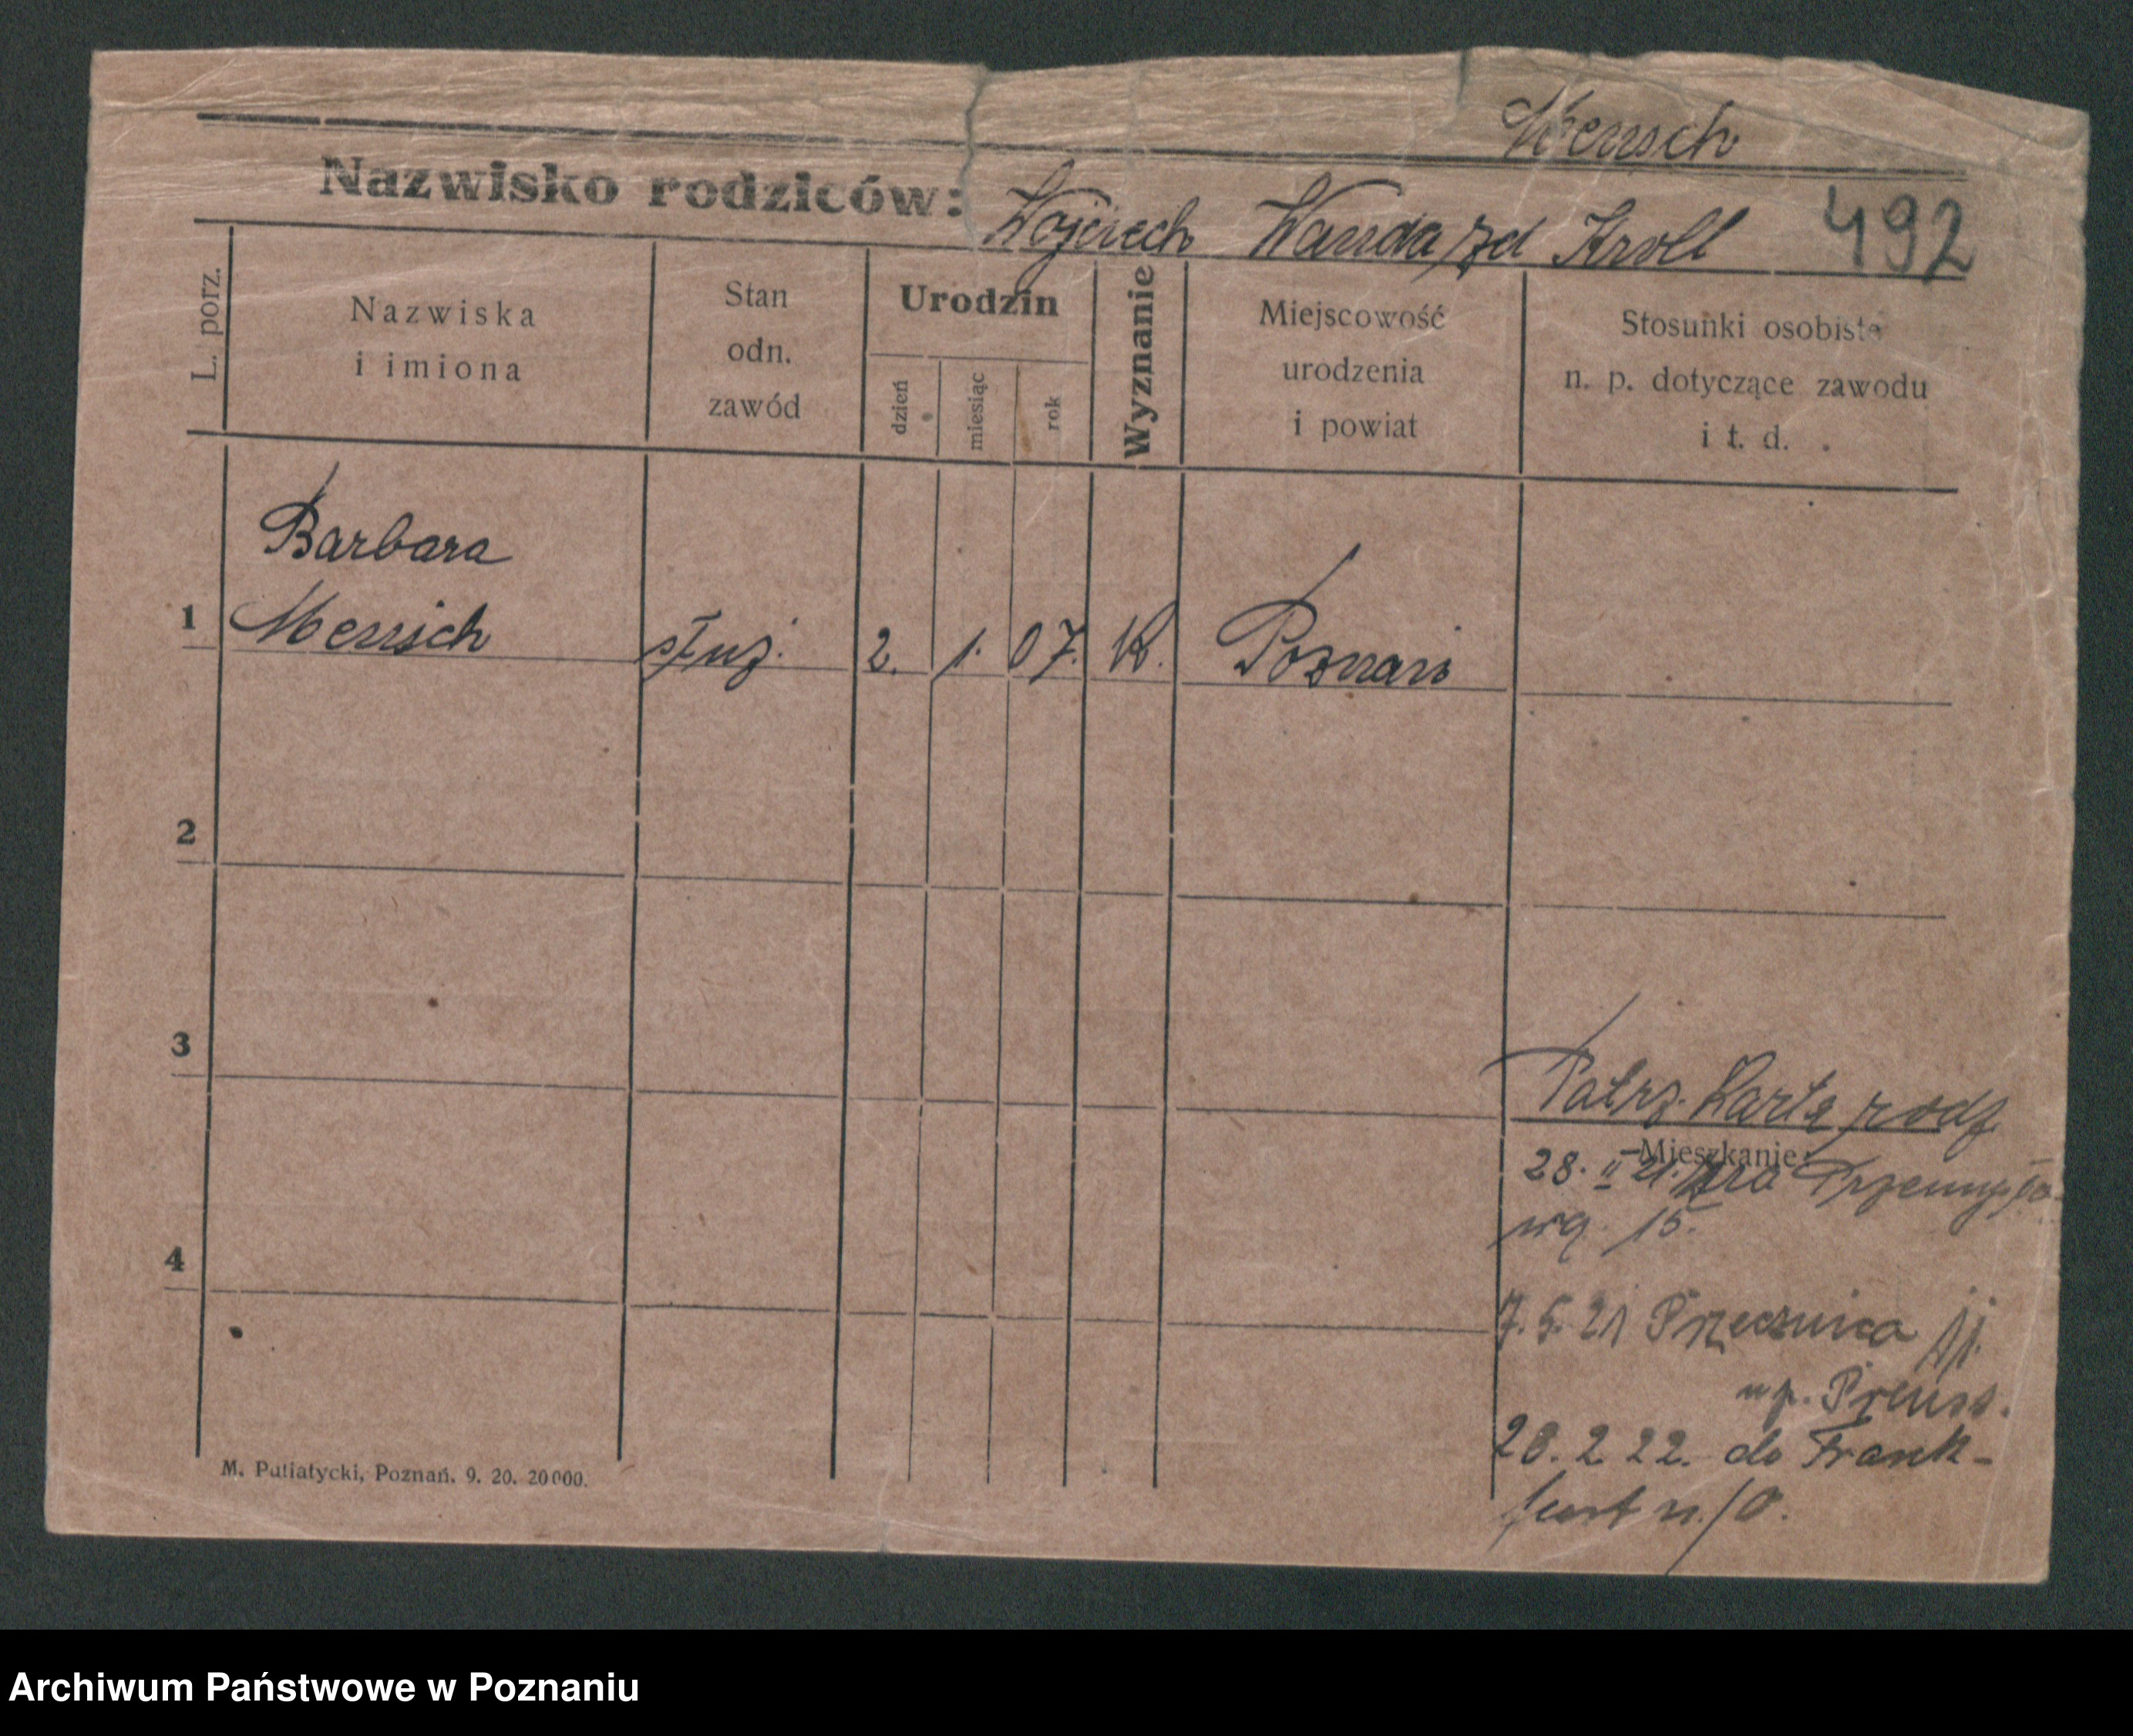 Mensch
Nazwisko rodziców: Wojciech Wanda zd Kroll
492
L. porz.
Nazwiska
i imiona
Stan
odn.
zawód
Urodzin
dzień
miesiąc
rok
Wyznanie
Miejscowość
urodzenia
i powiat
Stosunki osobiste
n. p. dotyczące zawodu
i t. d.
Barbara
1 Mensch służ. 2. 1. 07. K. Poznań
2
3
Patrz kartę rodz
Mieszkanie:
28. II 21. Przemysło
wa 15.
4
7.5.21 Przecznica
up. Preuss.
20. 2 22. do Frank-
furt n./O.
M. Putiatycki, Poznań. 9. 20. 20000.
Archiwum Państwowe w Poznaniu